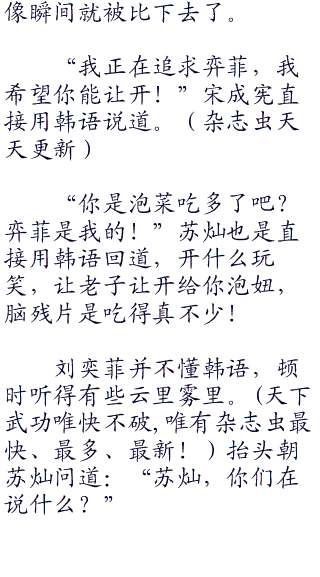 像瞬间就被比下去了。
“我正在追求弈菲，我
希望你能让开！”宋成宪直
接用韩语说道。（杂志虫天
天更新）
“你是泡菜吃多了吧？
弈菲是我的！”苏灿也是直
接用韩语回道，开什么玩
笑，让老子让开给你泡妞，
脑残片是吃得真不少！
刘奕菲并不懂韩语，顿
时听得有些云里雾里。(天下
武功唯快不破,唯有杂志虫最
快、最多、最新！）抬头朝
苏灿问道：“苏灿，你们在
说什么？”